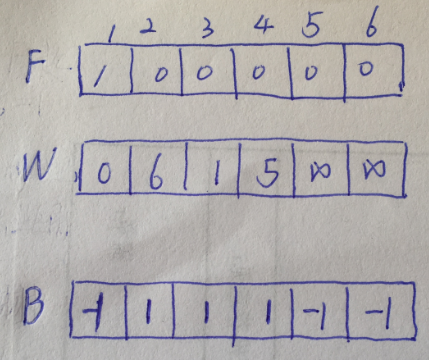 1 2 3 4 5 6
F 1 0 0 0 0 0
W 0 6 1 5 ∞ ∞
B -1 1 1 1 -1 -1